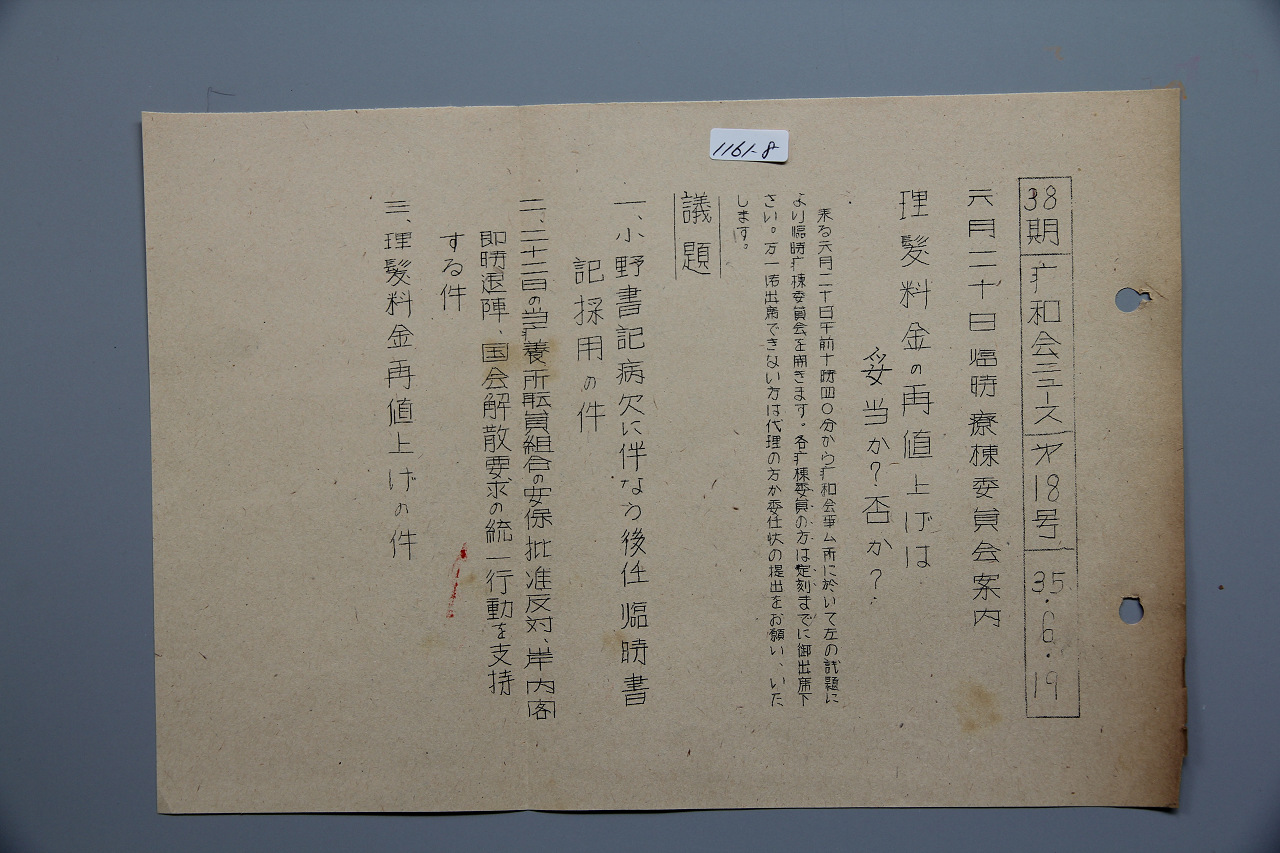 1161-8
38期 疒和会ニュース 才18号 35.6.19
六月二十日臨時療棟委員会案内
理髪料金の再値上げは
妥当か?否か?
来る六月二十日午前十時四〇分から疒和会事ム所に於いて左の議題に
より臨時疒棟委員会を開きます。各疒棟委員の方は定刻までに御出席下
さい。万一御出席できない方は代理の方か委任状の提出をお願い、いた
します。
議題
一、小野書記病欠に伴なう後任臨時書
記採用の件
二、二十二日の当疒養所职員組合の安保批准反対、岸内閣
即時退陣、国会解散要求の統一行動を支持
する件
三、理髪料金再値上げの件